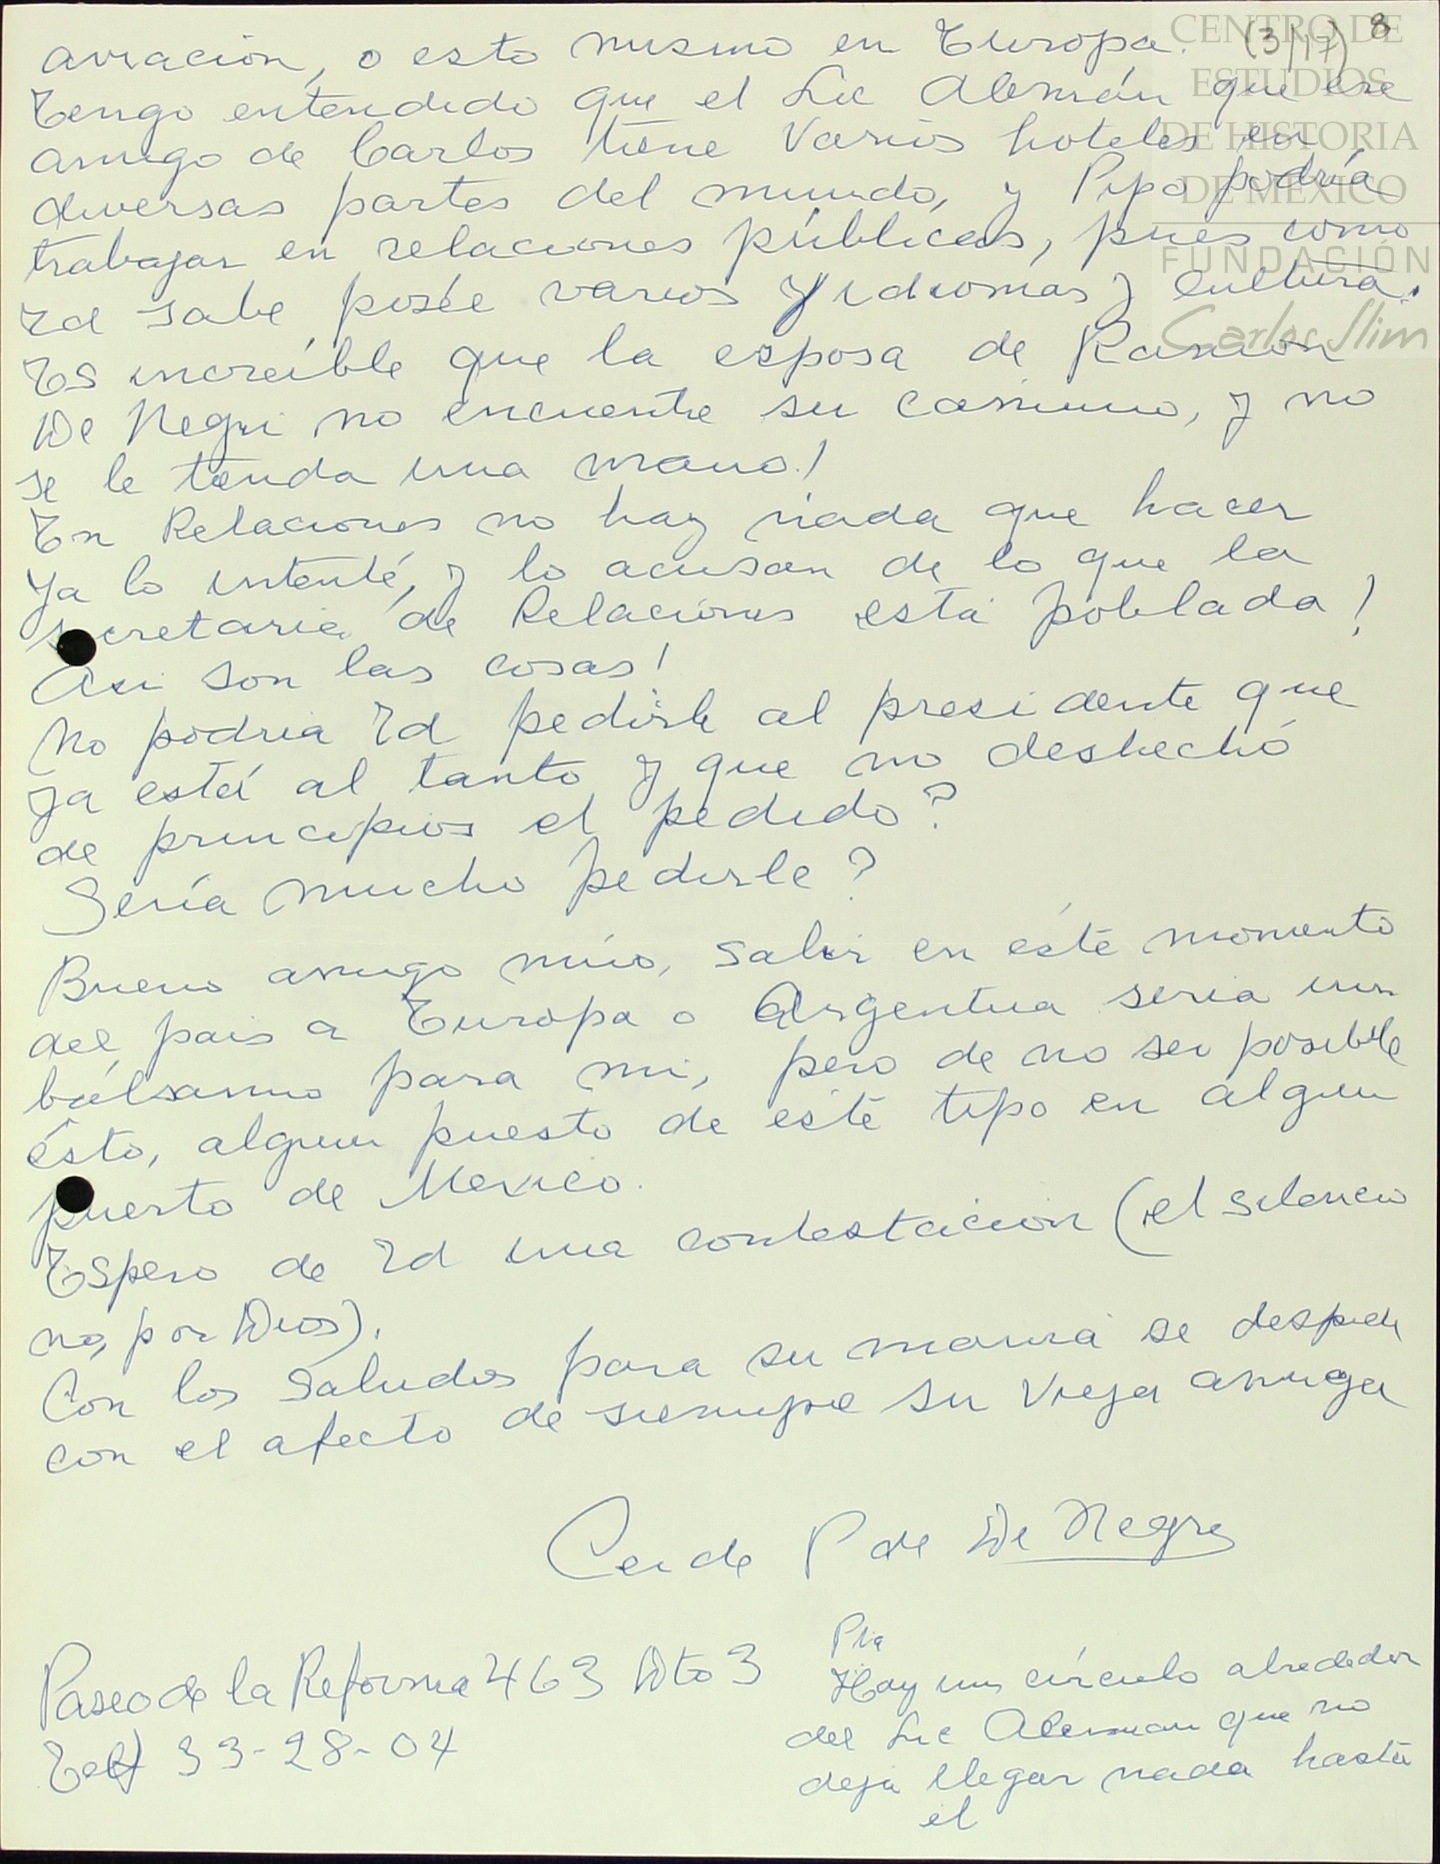 (3/17) 8
CENTRO DE
ESTUDIOS
DE HISTORIA
DE MÉXICO
FUNDACIÓN
Carlos Slim
aviación, o esto mismo en Europa.
Tengo entendido que el Lic Alemán que era
amigo de Carlos tiene varios hoteles en
diversas partes del mundo, y Pipo podría
trabajar en relaciones públicas, pues como
Ud sabe posée varios idiomas y cultura.
Es increíble que la esposa de Ramón
De Negri no encuentre su camino, y no
se le tienda una mano!
En Relaciones no hay nada que hacer
ya lo intenté, y lo acusan de lo que la
secretaria de Relaciones está poblada!
Asi son las cosas!
No podria Ud pedirle al presidente que
ya está al tanto y que no deshechó
de principios el pedido?
Sería mucho pedirle?
Bueno amigo mío, salir en éste momento
del pais a Europa o Argentina seria un
bálsamo para mi, pero de no ser posible
ésto, algun puesto de éste tipo en algun
puerto de Mexico.
Espero de Ud una contestacion (el silencio
no, por Dios).
Con los saludos para su mamá se despide
con el afecto de siempre su vieja amiga
P de De Negri
Paseo de la Reforma 463 Dto 3
Telf 33-28-04
Hay un círculo alrededor
del Lic Aleman que no
deja llegar nada hasta
él